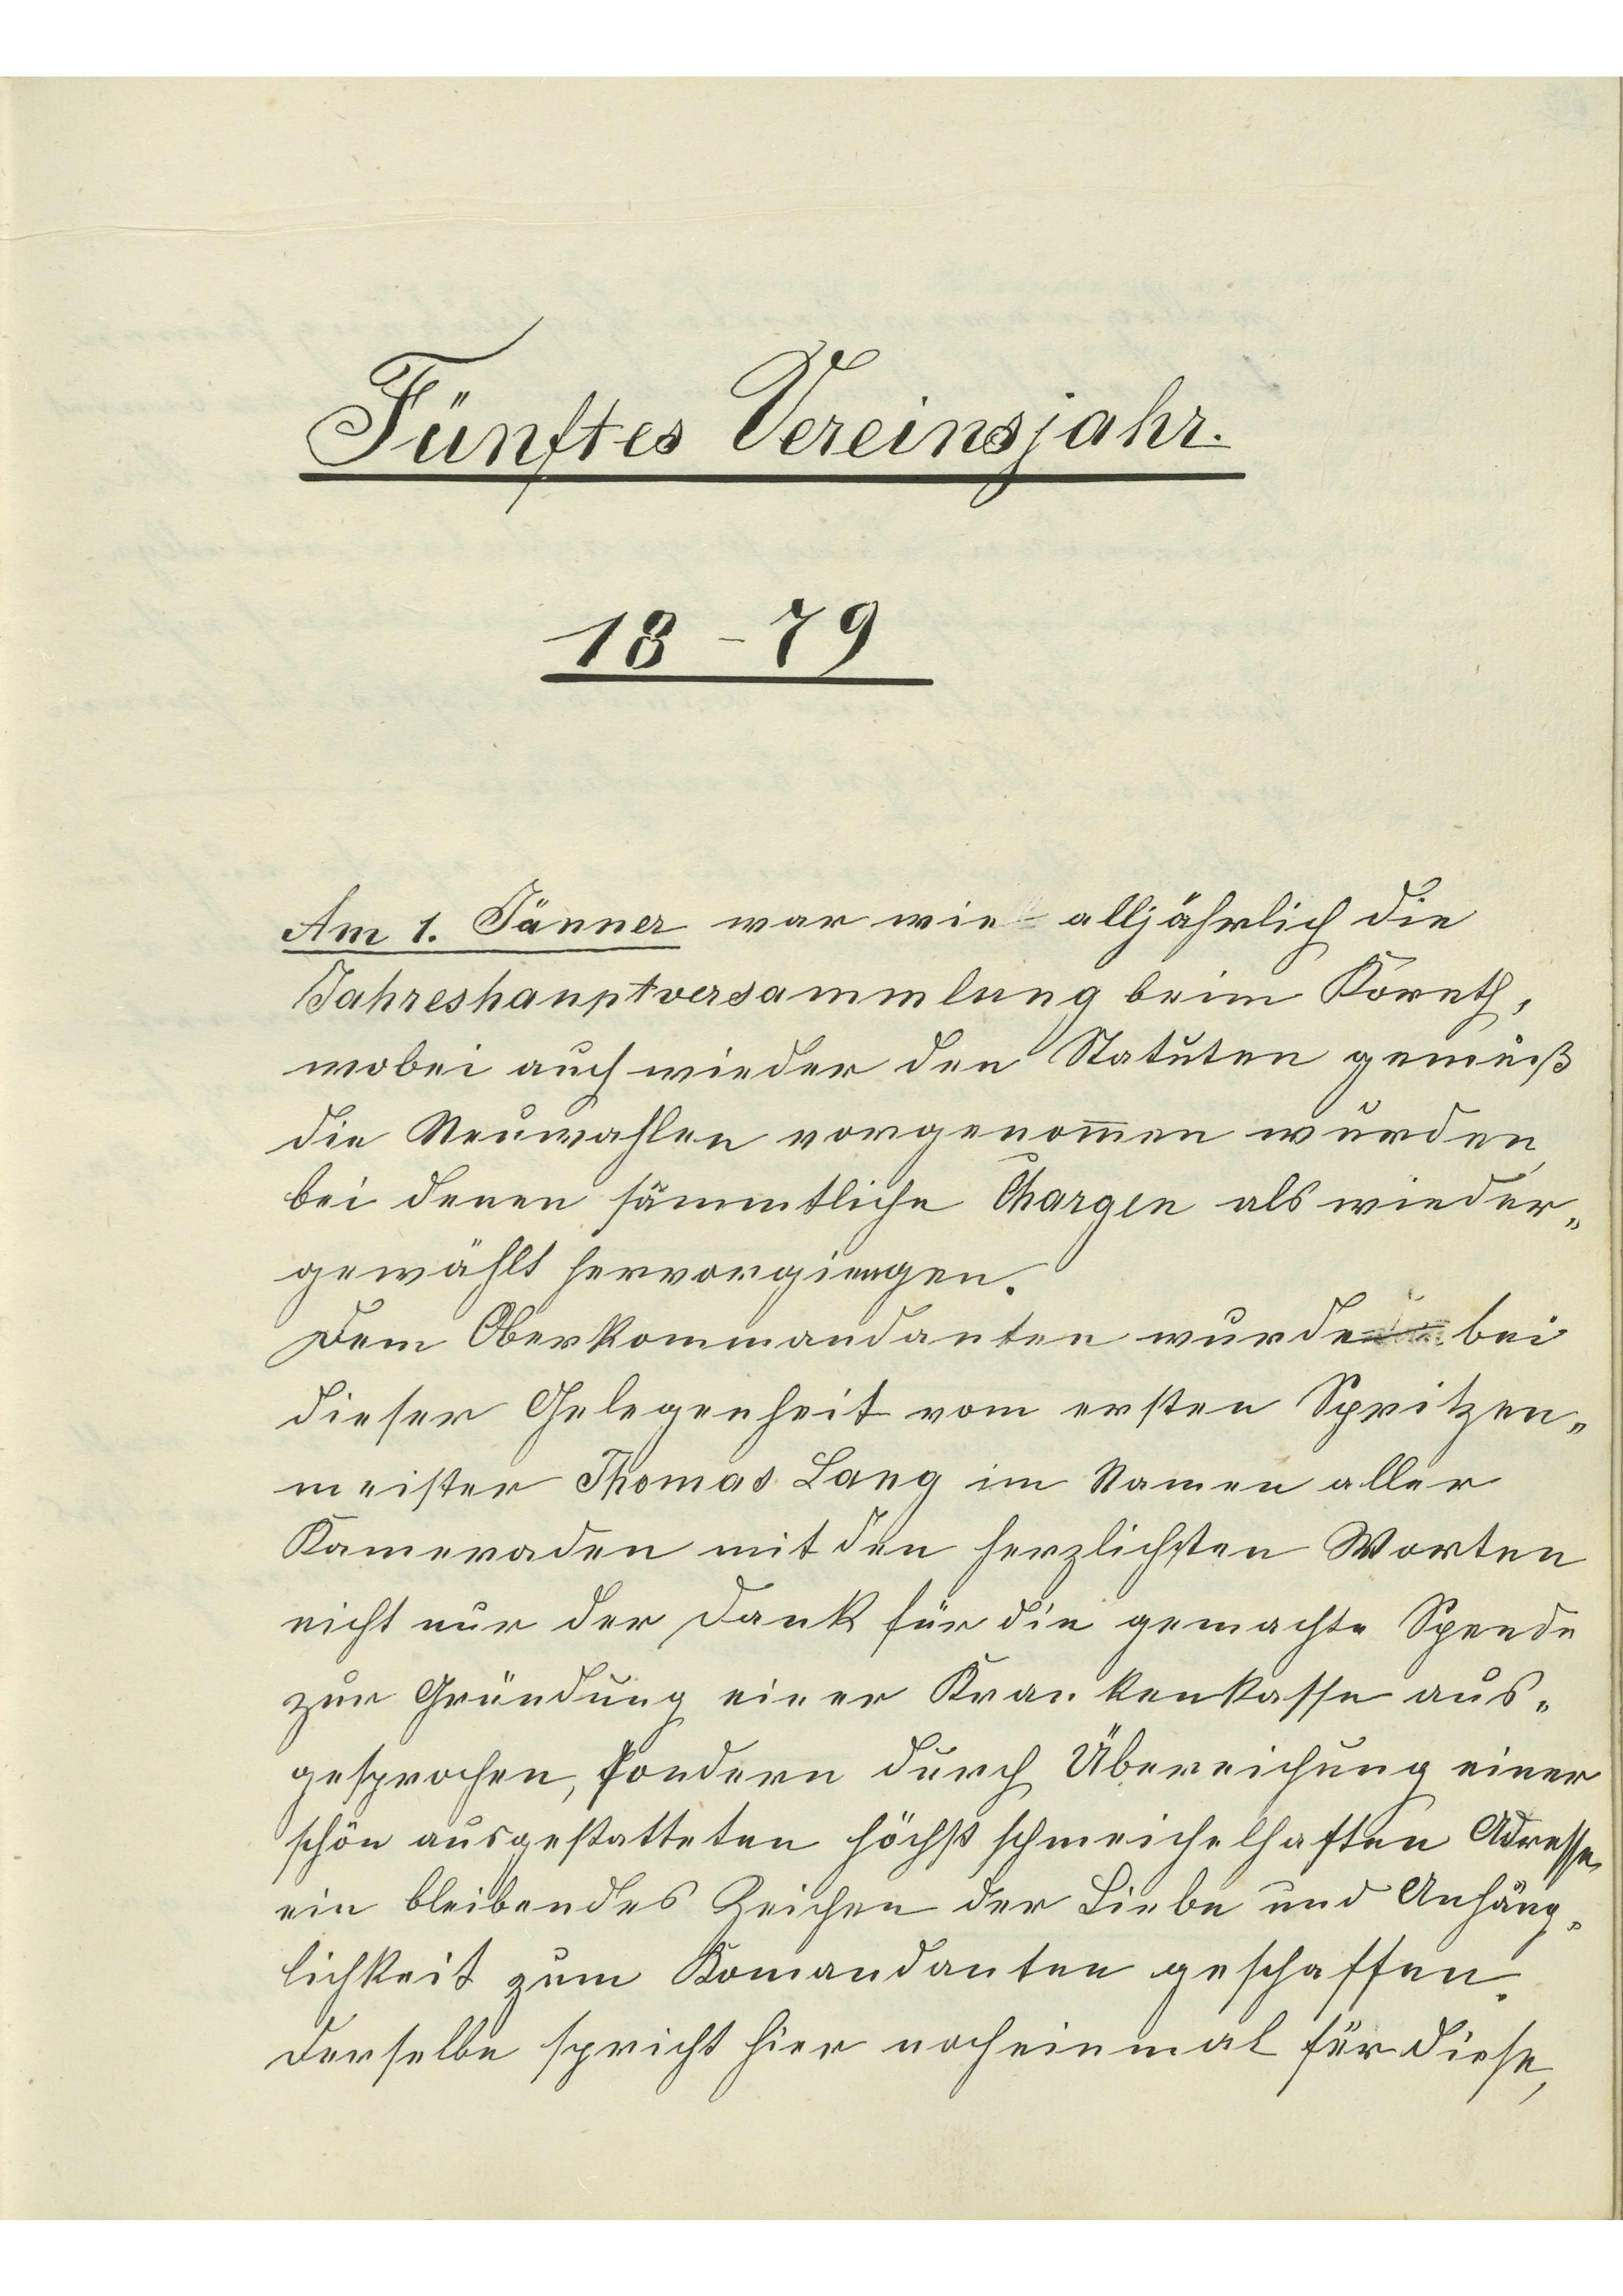 Fünftes Vereinsjahr.
18-79
Am 1. Jänner war wie alljährlich die
Jahreshauptversammlung beim Koreth,
wobei auch wieder den Statuten gemäß
die Neuwahlen vorgenom̄en wurden,
bei denen sämmtliche Chargen als wieder„
gewählt hervorgiengen.
Dem Oberkommandanten wurde bei
dieser Gelegenheit vom ersten Spritzen„
meister Thomas Lang im Namen aller
Kameraden mit den herzlichsten Worten
nicht nur der Dank für die gemachte Spende
zur Gründung einer Krankenkasse aus„
gesprochen, sondern durch Übereichung einer
schön ausgestatteten höchst schmeichelhaften Adresse,
ein bleibendes Zeichen der Liebe und Anhäng„
lichkeit zum Komandanten geschaffen.
Derselbe spricht hier nocheinmal für diese,